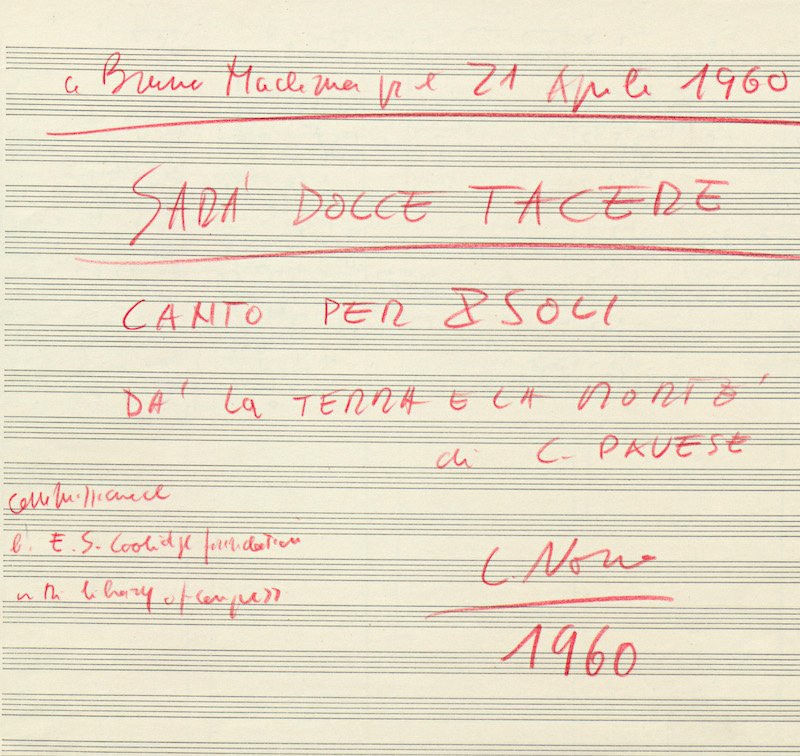 a Bruno Maderna per il 21 Aprile 1960
SARA' DOLCE TACERE
CANTO PER 8 SOLI
DA' La TERRA E LA MORTE'
di C. PAVESE
commissioned
by E. S. Coolidge foundation
in the library of congress
L. Nono
1960